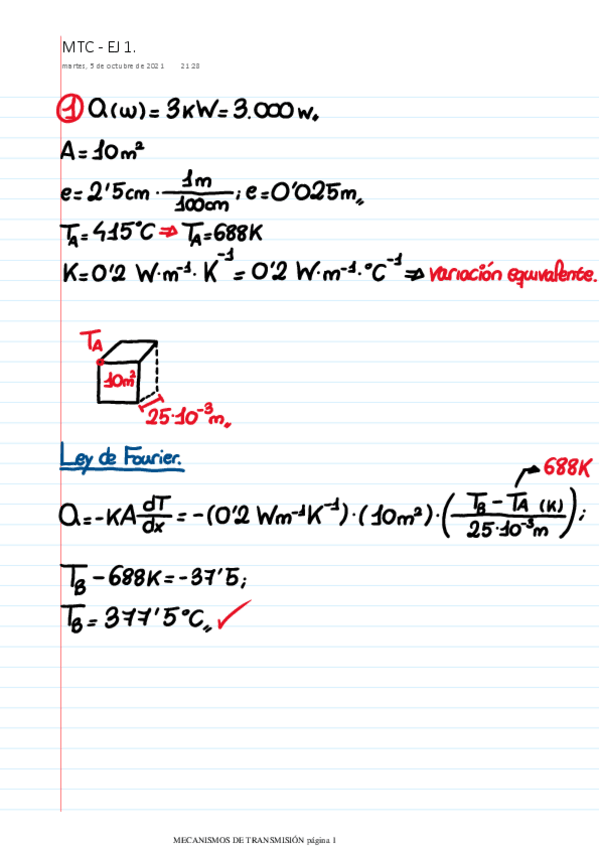 MTC - EJ 1.
martes, 5 de octubre de 2021 21:28
① Q(w) = 3KW = 3.000 w.
A = 10 m²
e = 2'5 cm · 1m / 100cm ; e = 0'025 m,,
T_A = 415°C ⇒ T_A = 688K
K = 0'2 W·m⁻¹·K⁻¹ = 0'2 W·m⁻¹·°C⁻¹ ⇒ variación equivalente.
T_A
10m²
25·10⁻³ m,,
Ley de Fourier.
688K
Q = -KA dT/dx = -(0'2 Wm⁻¹K⁻¹)·(10m²)·(T_B - T_A (K) / 25·10⁻³m);
T_B - 688K = -37'5;
T_B = 377'5°C,, ✓
MECANISMOS DE TRANSMISIÓN página 1